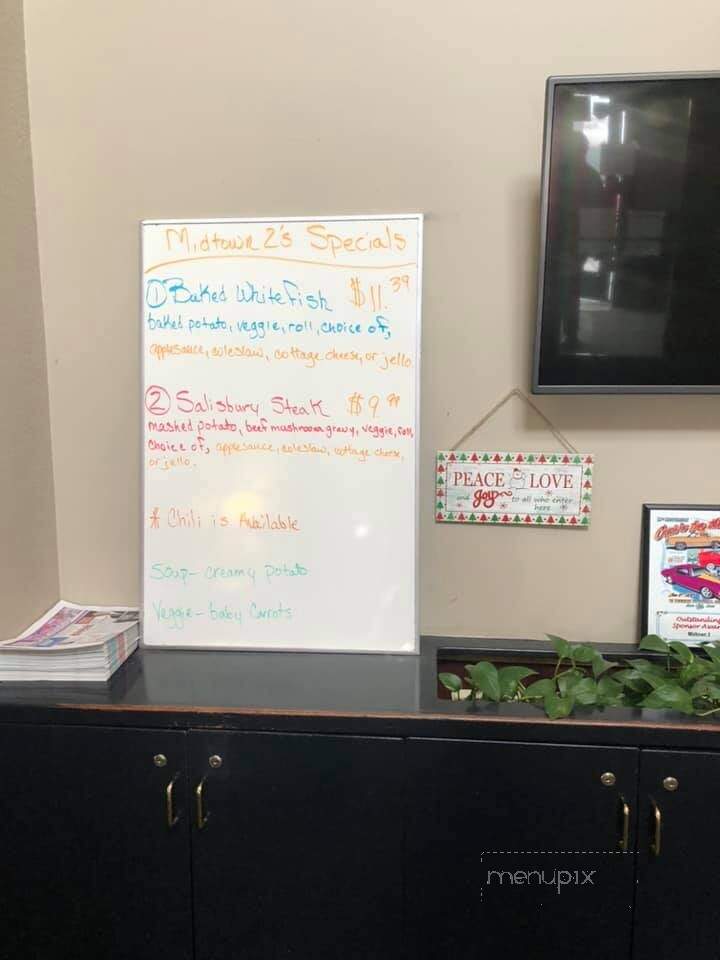 Midtown 2's Specials
① Baked Whitefish $11.39
baked potato, veggie, roll, choice of,
applesauce, coleslaw, cottage cheese, or jello.
② Salisbury Steak $9.99
mashed potato, beef mushroom gravy, veggie, roll,
choice of, applesauce, coleslaw, cottage cheese,
or jello.
* Chili is Available
Soup- creamy potato
Veggie- baby Carrots
PEACE LOVE
and joy to all who enter
here
Outstanding
Sponsor Awar
Midtown 2
menupix